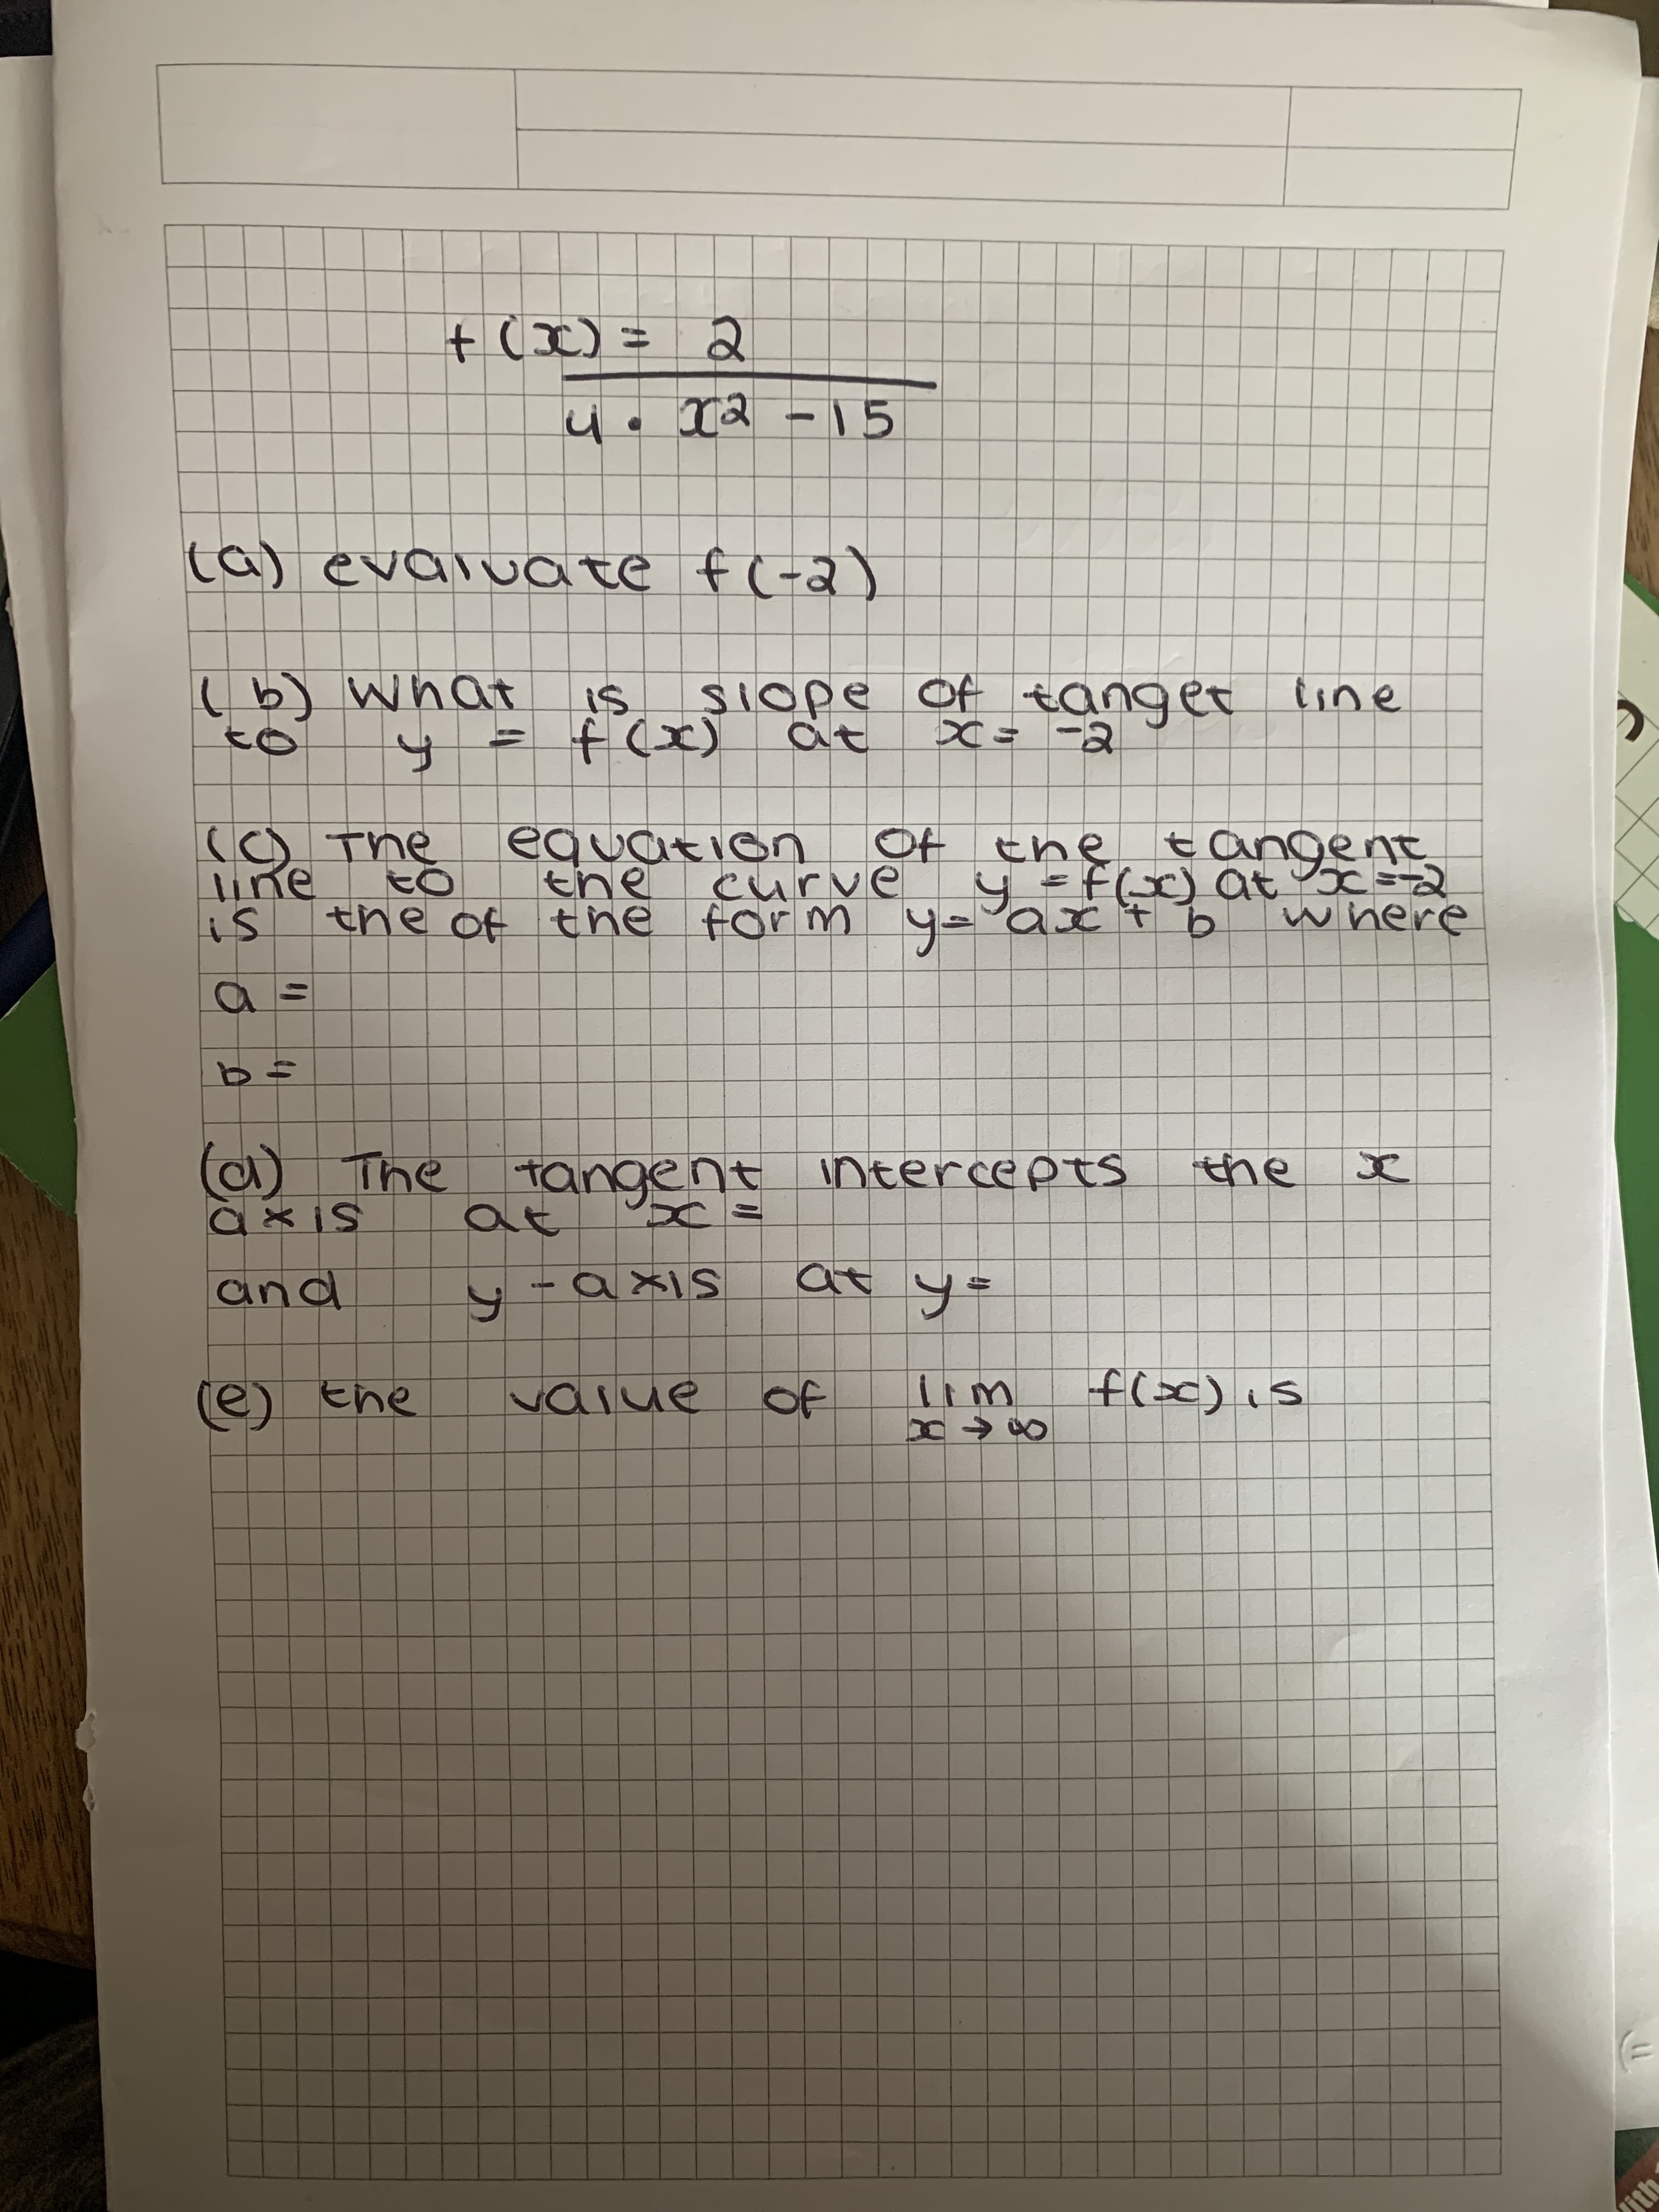 f(x) = 2
4 · x2 - 15
(a) evaluate f(-2)
(b) What is slope of tanget line
to y = f(x) at x = -2
(c) The equation of the tangent
line to the curve y = f(x) at x = -2
is the of the form y = ax + b where
a =
b =
(d) The tangent intercepts the x
axis at x =
and y-axis at y =
(e) the value of lim f(x) is
x → ∞